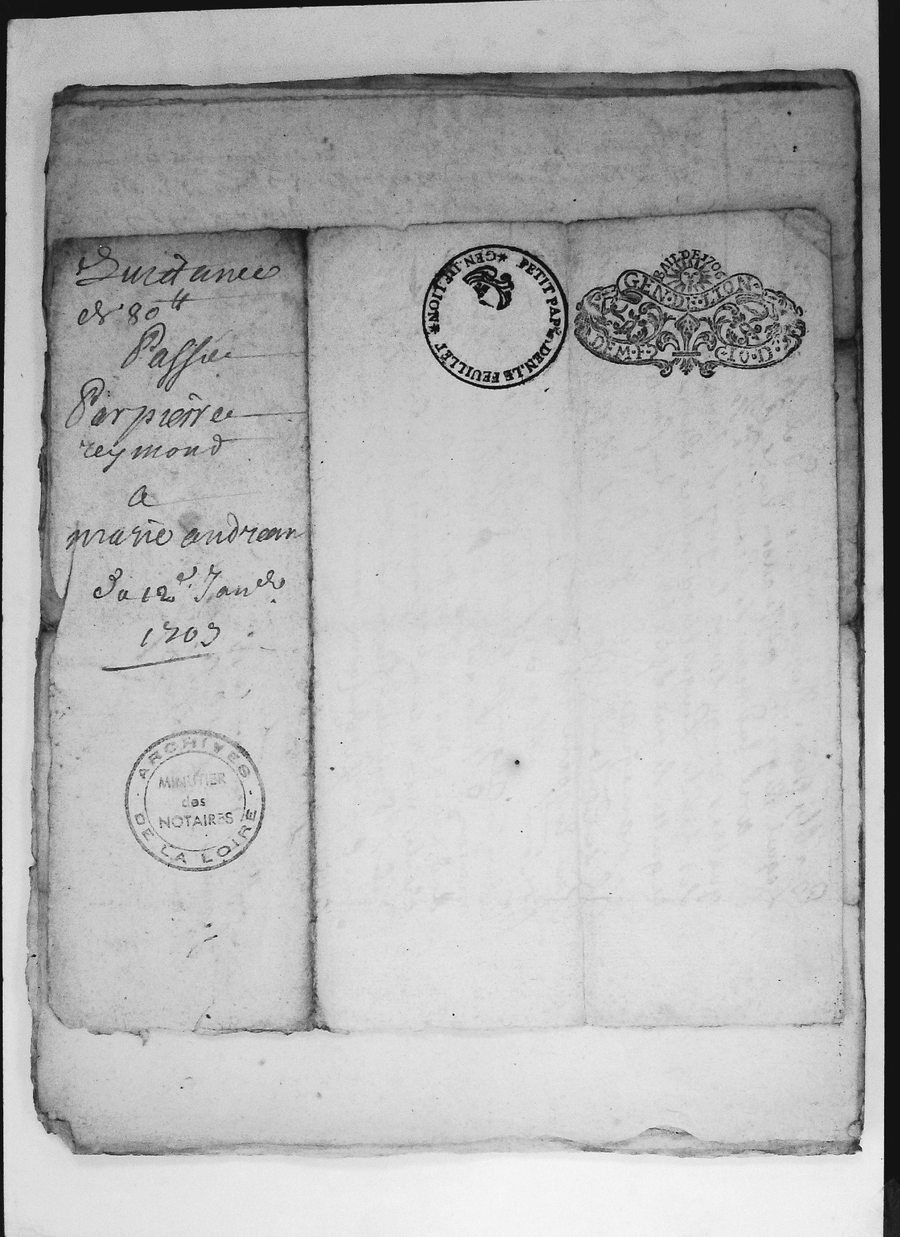 Quictance
de 80 tt
Passée
Par pierre
reymond
a
marie andrean
Du 12e Janer
1703
ARCHIVES DE LA LOIRE
MINUTIER
des
NOTAIRES
GEN. DE LION PETIT PAP. 8 DEN. LE FEUILLET
GEN·DE·LION·